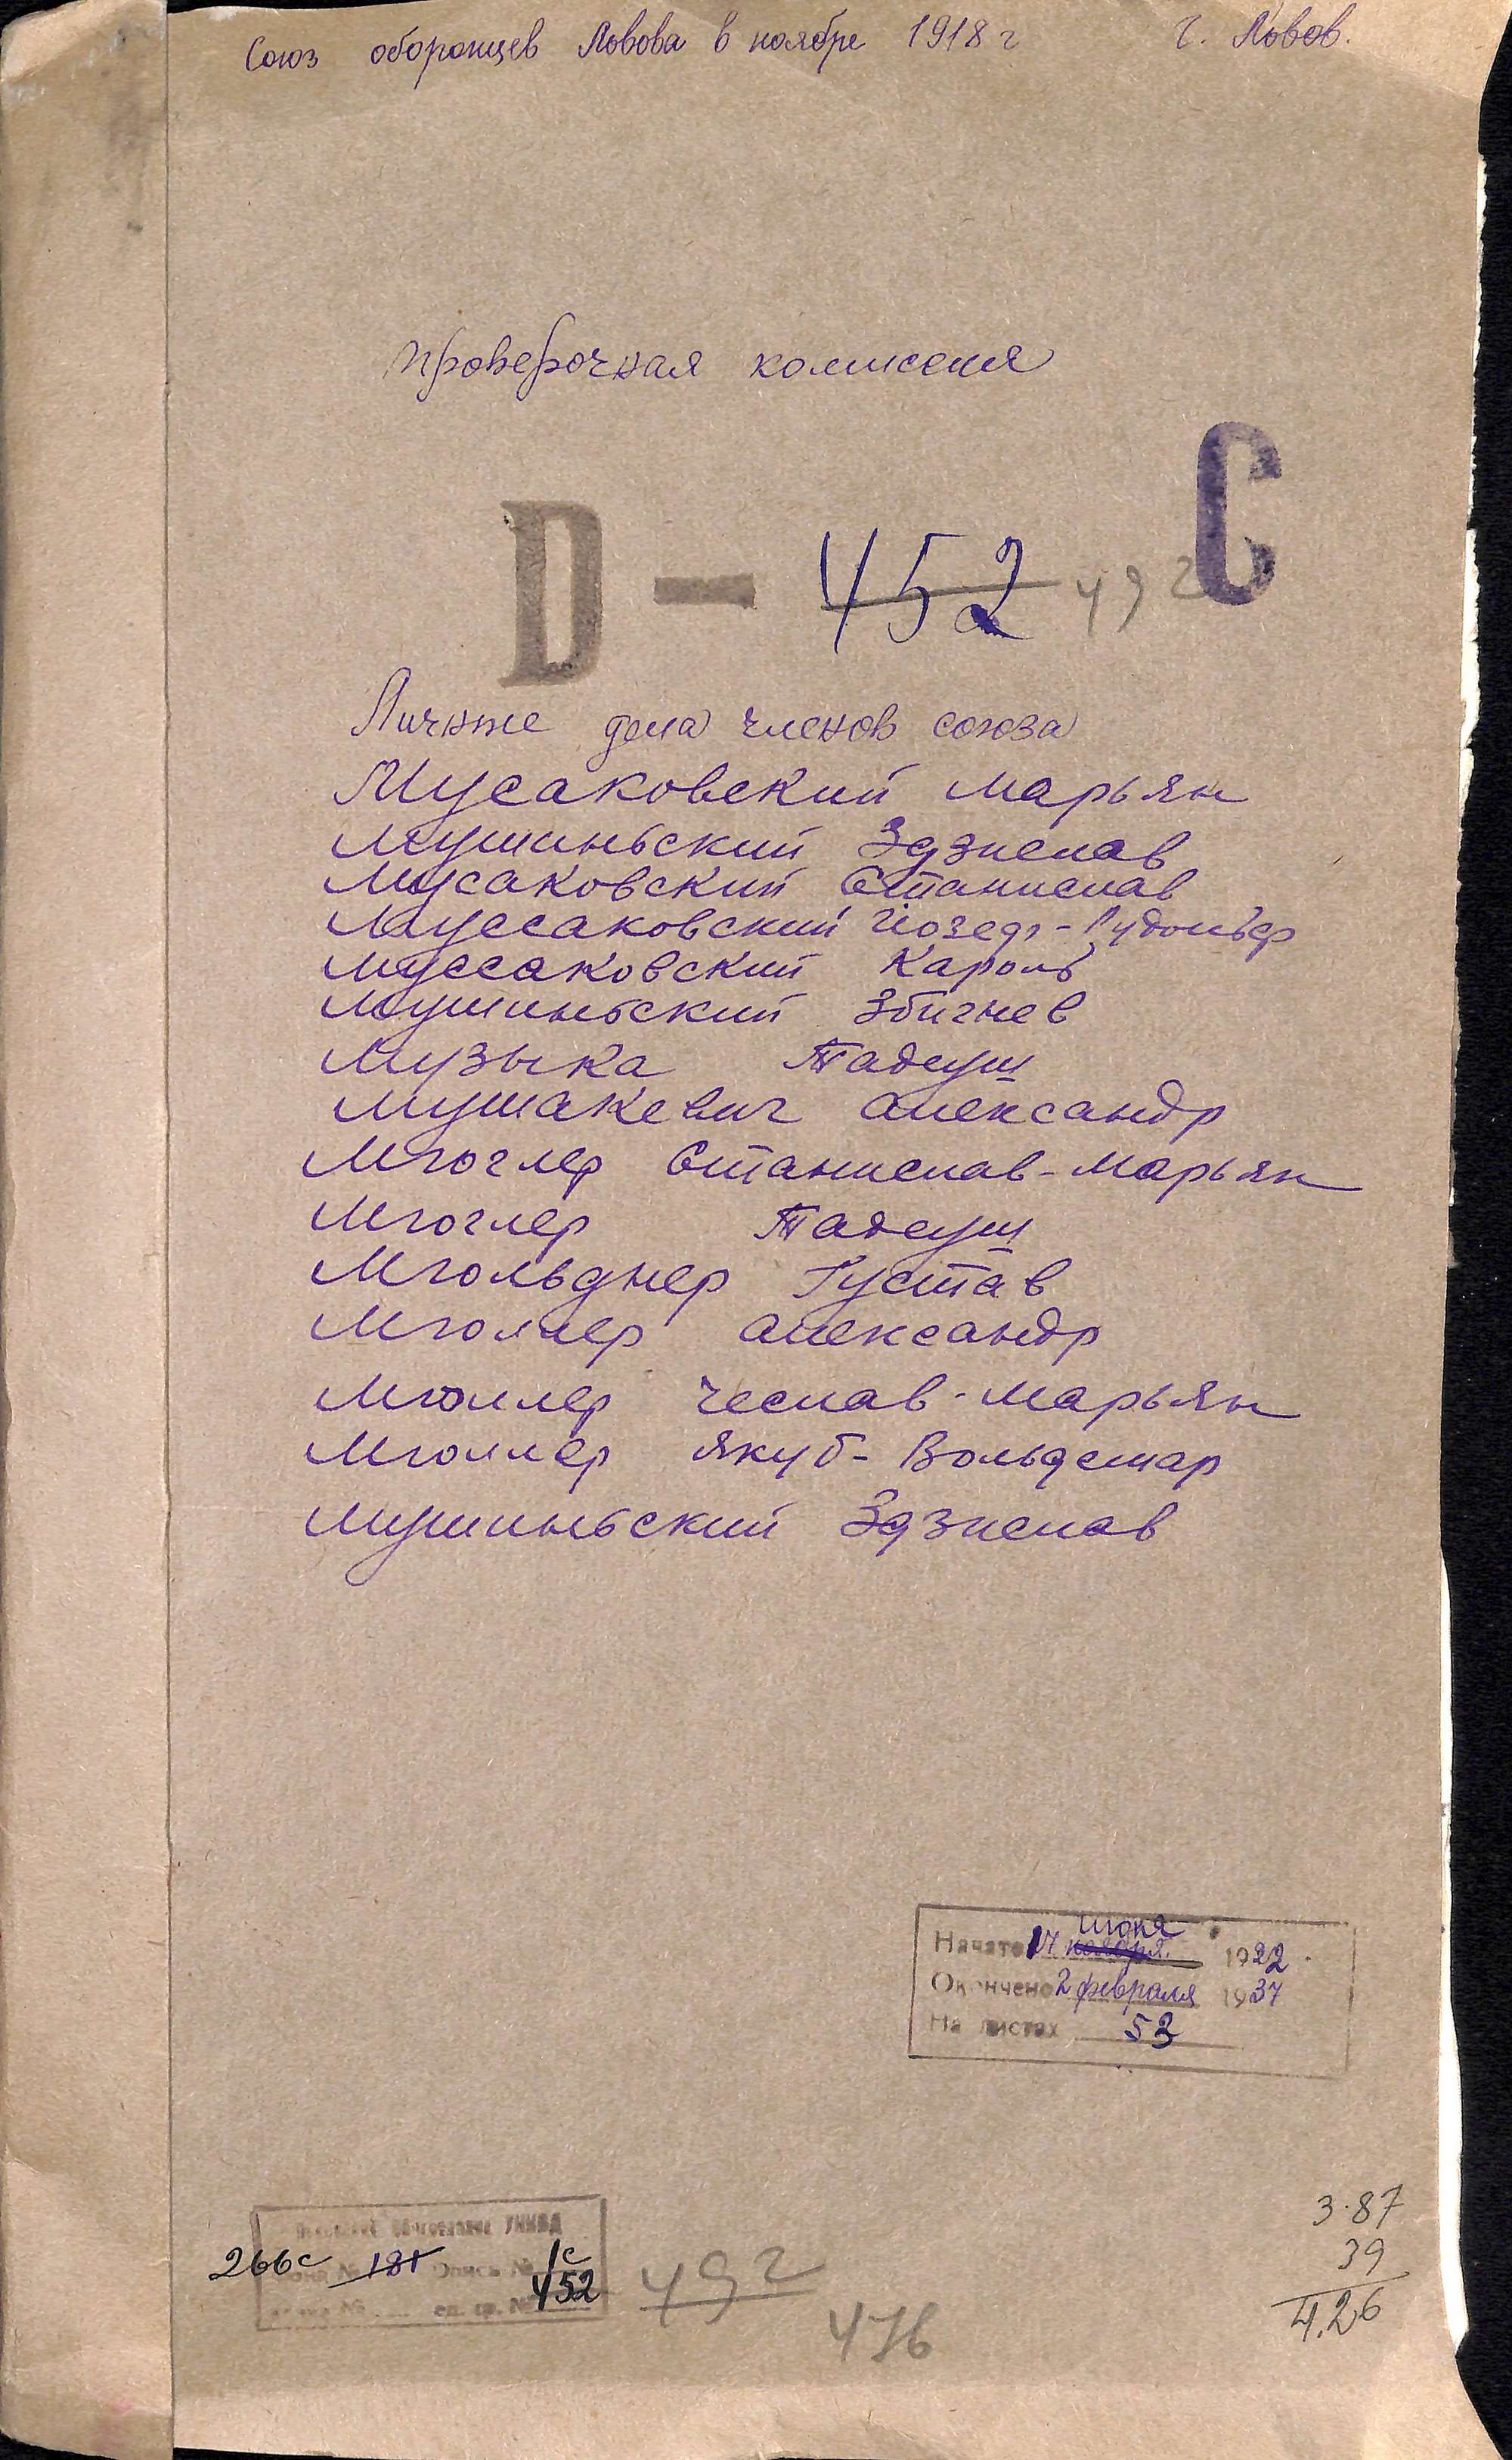 Союз оборонцев Львова в ноябре 1918 г г. Львов.
Проверочная комиссия
C
D — 452 492
Личные дела членов союза
Мусаковский Марьян
Мушиньский Здзислав
Мусаковский Станислав
Муссаковский Йозеф-Рудольф
Муссаковский Кароль
Мушиньский Збигнев
Музыка Тадеуш
Мушакевич Александр
Мюглер Станислав-Марьян
Мюглер Тадеуш
Мюльднер Густав
Мюллер Александр
Мюллер Чеслав-Марьян
Мюллер Якуб-Вольдемар
Мушиньский Здзислав
июня
Начато 17 ноября 1922
Окончено 2 февраля 1937
На листах 53
УНКВД
266с № 181 Опись № 1с
ед. хр. № 452
492
476
3.87
39
4.26